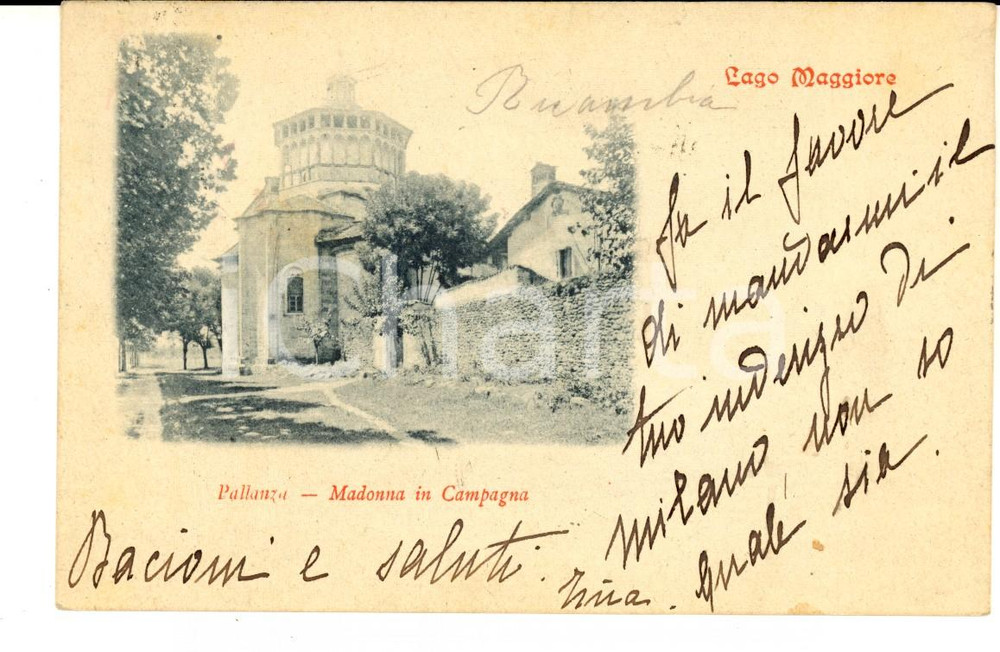 Lago Maggiore
Ricambia
fa il favore
di mandarmi il
tuo inderizzo di
Milano, non so
quale sia.
Pallanza — Madonna in Campagna
Bacioni e saluti.
Nina.
iCharta